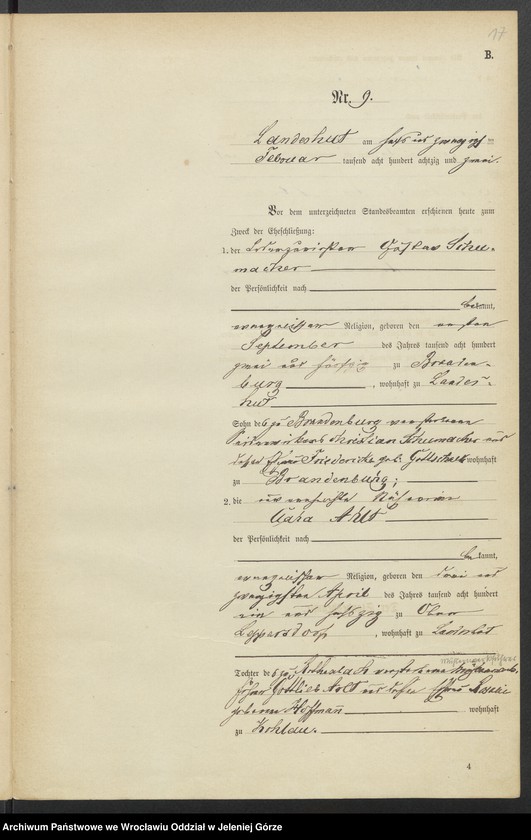 17
B.
Nr. 9.
Landeshut am sechs und zwanzigsten
Februar tausend acht hundert achtzig und zwei.
Vor dem unterzeichneten Standesbeamten erschienen heute zum
Zweck der Eheschließung:
1. der Gustav Schu-
macher
der Persönlichkeit nach
bekannt,
evangelischer Religion, geboren den ersten
September des Jahres tausend acht hundert
zwei und fünfzig zu Branden-
burg, wohnhaft zu Landes-
hut
Sohn des zu Brandenburg verstorbenen
Christian Schumacher und
dessen Ehefrau Friedericke geb. Gottschalk wohnhaft
zu Brandenburg;
2. die unverehelichte Näherin
Clara Arlt
der Persönlichkeit nach
bekannt,
evangelischer Religion, geboren den drei und
zwanzigsten April des Jahres tausend acht hundert
ein und sechzig zu Ober
Leppersdorf, wohnhaft zu Landeshut
Tochter des zu verstorbenen
Gottlieb Arlt und dessen Ehefrau Rosalie
geborene Hoffmann wohnhaft
zu Krohldau.
4
Archiwum Państwowe we Wrocławiu Oddział w Jeleniej Górze